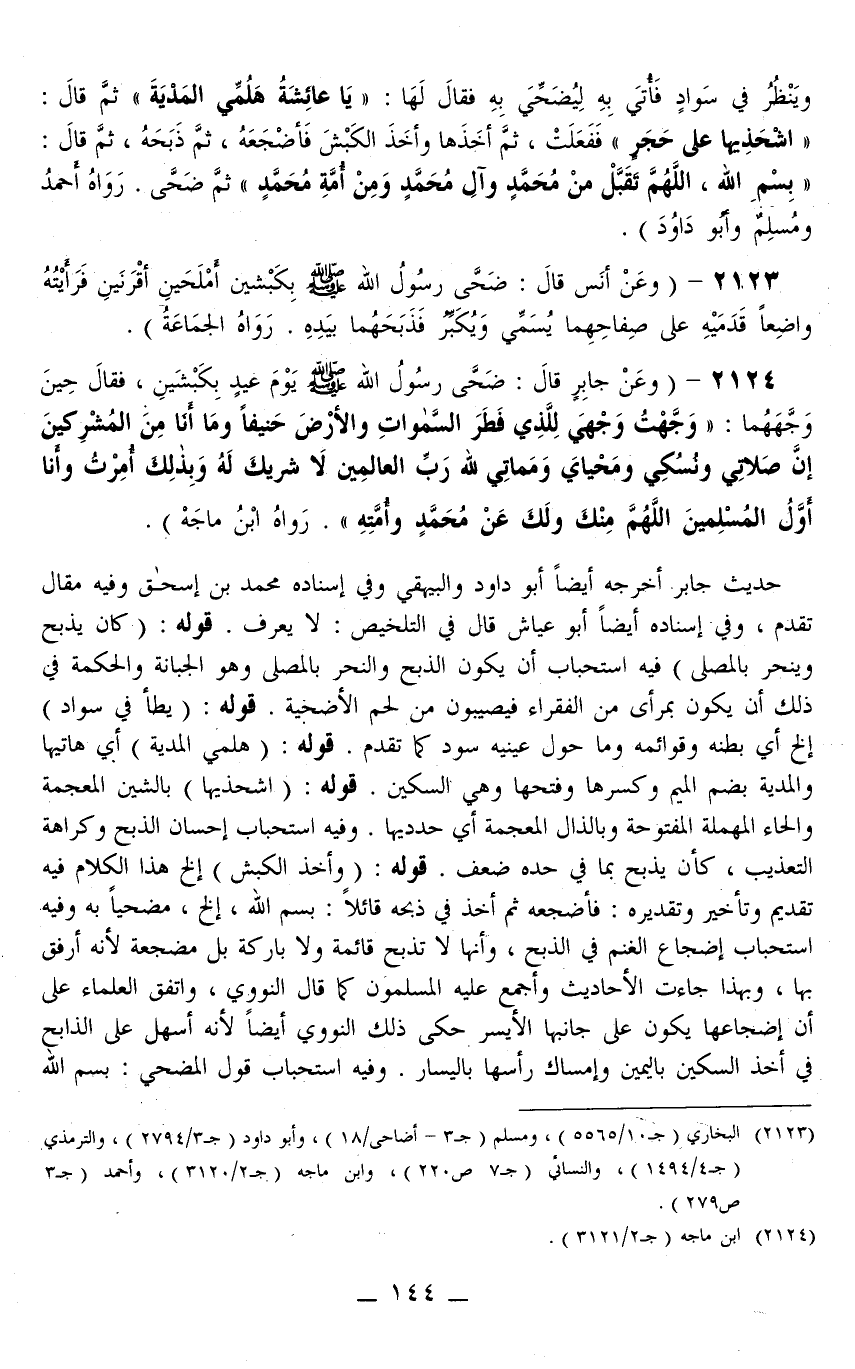 ويَنْظُرُ في سَوادٍ فَأُتِيَ بِهِ لِيُضَحِّيَ بِهِ فقالَ لَهَا : « يَا عائِشَةُ هَلُمِّي المَدْيَةَ » ثمَّ قالَ :
« اشْحَذِيها على حَجَرٍ » فَفَعَلَتْ ، ثمَّ أخَذَها وأخَذَ الكَبْشَ فَأضْجَعَهُ ، ثمَّ ذَبَحَهُ ، ثمَّ قالَ :
« بِسْمِ الله ، اللَّهُمَّ تَقَبَّلْ منْ مُحَمَّدٍ وآلِ مُحَمَّدٍ وَمِنْ أُمَّةِ مُحَمَّدٍ » ثمَّ ضَحَّى . رَوَاهُ أَحمدُ
ومُسلِمٌ وأبُو دَاوُدَ ) .
٢١٢٣ – ( وعَنْ أنَس قالَ : ضَحَّى رسُولُ الله ﷺ بِكَبْشين أَمْلَحَينِ أقْرَنَينِ فَرَأيْتُهُ
واضِعاً قَدَمَيْهِ على صِفاحِهِما يُسَمِّي وَيُكَبِّرُ فَذَبَحَهُما بيَدِهِ . رَوَاهُ الجَماعَةُ ) .
٢١٢٤ – ( وعَنْ جابِرٍ قالَ : ضَحَّى رسُولُ الله ﷺ يَوْمَ عيدٍ بِكَبْشَينِ ، فقالَ حِينَ
وَجَّهَهُما : « وَجَّهْتُ وَجْهيَ لِلَّذِي فَطَرَ السَّمٰواتِ والأرْضَ حَنيفاً ومَا أَنَا مِنَ المُشْرِكينَ
إنَّ صَلاتِي ونُسُكِي ومَحْيايَ وَمَماتِي لله رَبِّ العالمِين لَا شريكَ لَهُ وَبِذٰلِكَ أُمِرْتُ وأَنا
أوَّلُ المُسْلِمينَ اللَّهُمَّ مِنْكَ ولَكَ عَنْ مُحَمَّدٍ وأُمَّتِهِ » . رَواهُ ابْنُ ماجَهْ ) .
حديث جابر أخرجه أيضاً أبو داود والبيهقي وفي إسناده محمد بن إسحٰق وفيه مقال
تقدم ، وفي إسناده أيضاً أبو عياش قال في التلخيص : لا يعرف . قوله : ( كان يذبح
وينحر بالمصلى ) فيه استحباب أن يكون الذبح والنحر بالمصلى وهو الجبانة والحكمة في
ذلك أن يكون بمرأى من الفقراء فيصيبون من لحم الأضحية . قوله : ( يطأ في سواد )
إلخ أي بطنه وقوائمه وما حول عينيه سود كما تقدم . قوله : ( هلمي المدية ) أي هاتيها
والمدية بضم الميم وكسرها وفتحها وهي السكين . قوله : ( اشحذيها ) بالشين المعجمة
والحاء المهملة المفتوحة وبالذال المعجمة أي حدديها . وفيه استحباب إحسان الذبح وكراهة
التعذيب ، كأن يذبح بما في حده ضعف . قوله : ( وأخذ الكبش ) إلخ هذا الكلام فيه
تقديم وتأخير وتقديره : فأضجعه ثم أخذ في ذبحه قائلاً : بسم الله ، إلخ ، مضحياً به وفيه
استحباب إضجاع الغنم في الذبح ، وأنها لا تذبح قائمة ولا باركة بل مضجعة لأنه أرفق
بها ، وبهذا جاءت الأحاديث وأجمع عليه المسلمون كما قال النووي ، واتفق العلماء على
أن إضجاعها يكون على جانبها الأيسر حكى ذلك النووي أيضاً لأنه أسهل على الذابح
في أخذ السكين باليمين وإمساك رأسها باليسار . وفيه استحباب قول المضحي : بسم الله
(٢١٢٣) البخاري ( جـ ٥٥٦٥/١٠ ) ، ومسلم ( جـ٣ – أضاحى/١٨ ) ، وأبو داود ( جـ٢٧٩٤/٣ ) ، والترمذي
( جـ١٤٩٤/٤ ) ، والنسائي ( جـ٧ ص٢٢٠ ) ، وابن ماجه ( جـ٣١٢٠/٢ ) ، وأحمد ( جـ٣
ص٢٧٩ ) .
(٢١٢٤) ابن ماجه ( جـ٣١٢١/٢ ) .
– ١٤٤ –